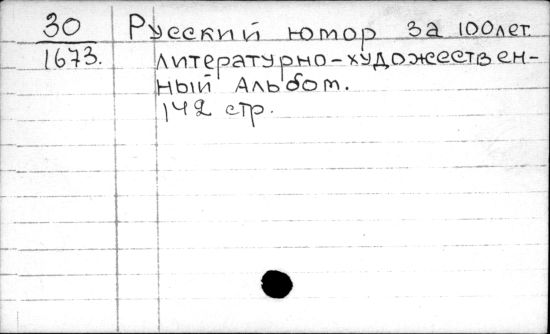 30 Русский юмор за 100лет
1673. литературно-художествен-
ный Альбом.
142 стр.